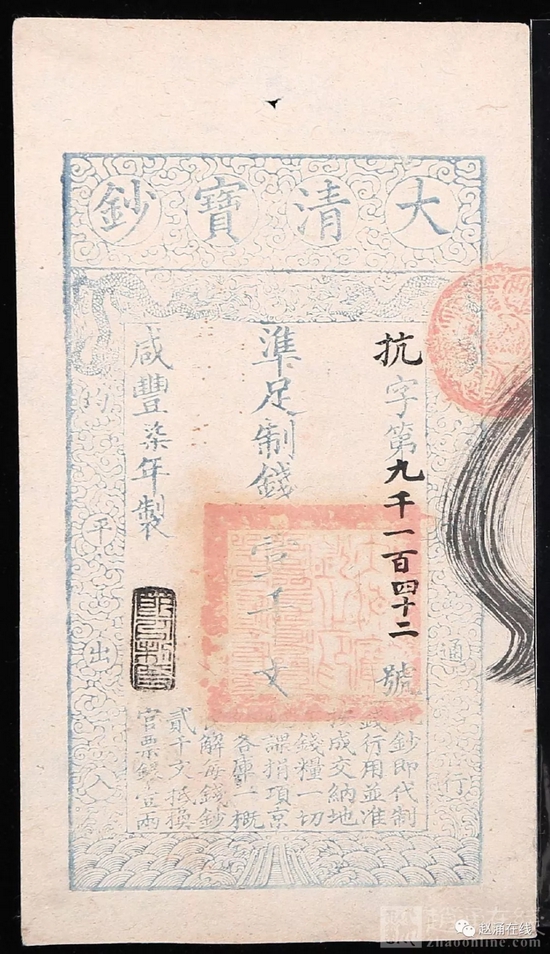 大清寶鈔
通行
抗字第九千一百四十二號
準足制錢壹千文
咸豐柒年製
均平出入
鈔即代制
錢行用並准
成交納地
錢糧一切
課捐項京
各庫一概
解每錢鈔
貳千文抵換
官票銀壹兩
赵涌在线
zhaoonline.com